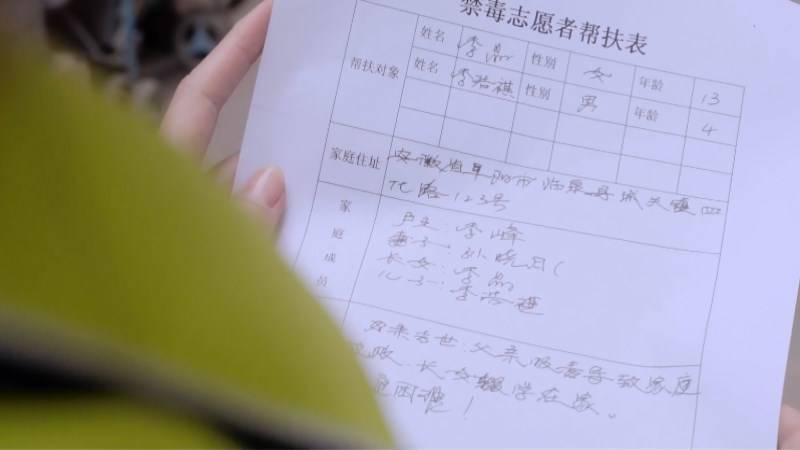 禁毒志愿者帮扶表
帮扶对象 姓名 李 性别 女 年龄 13
姓名 李浩祺 性别 男 年龄 4
家庭住址 安徽省阜阳市临泉县城关镇四
化路123号
家庭成员 户主:李峰
妻子:孙晓
长女:李
儿子:李浩祺
去世.父亲吸毒导致家庭
败.长女辍学在家。
困难!